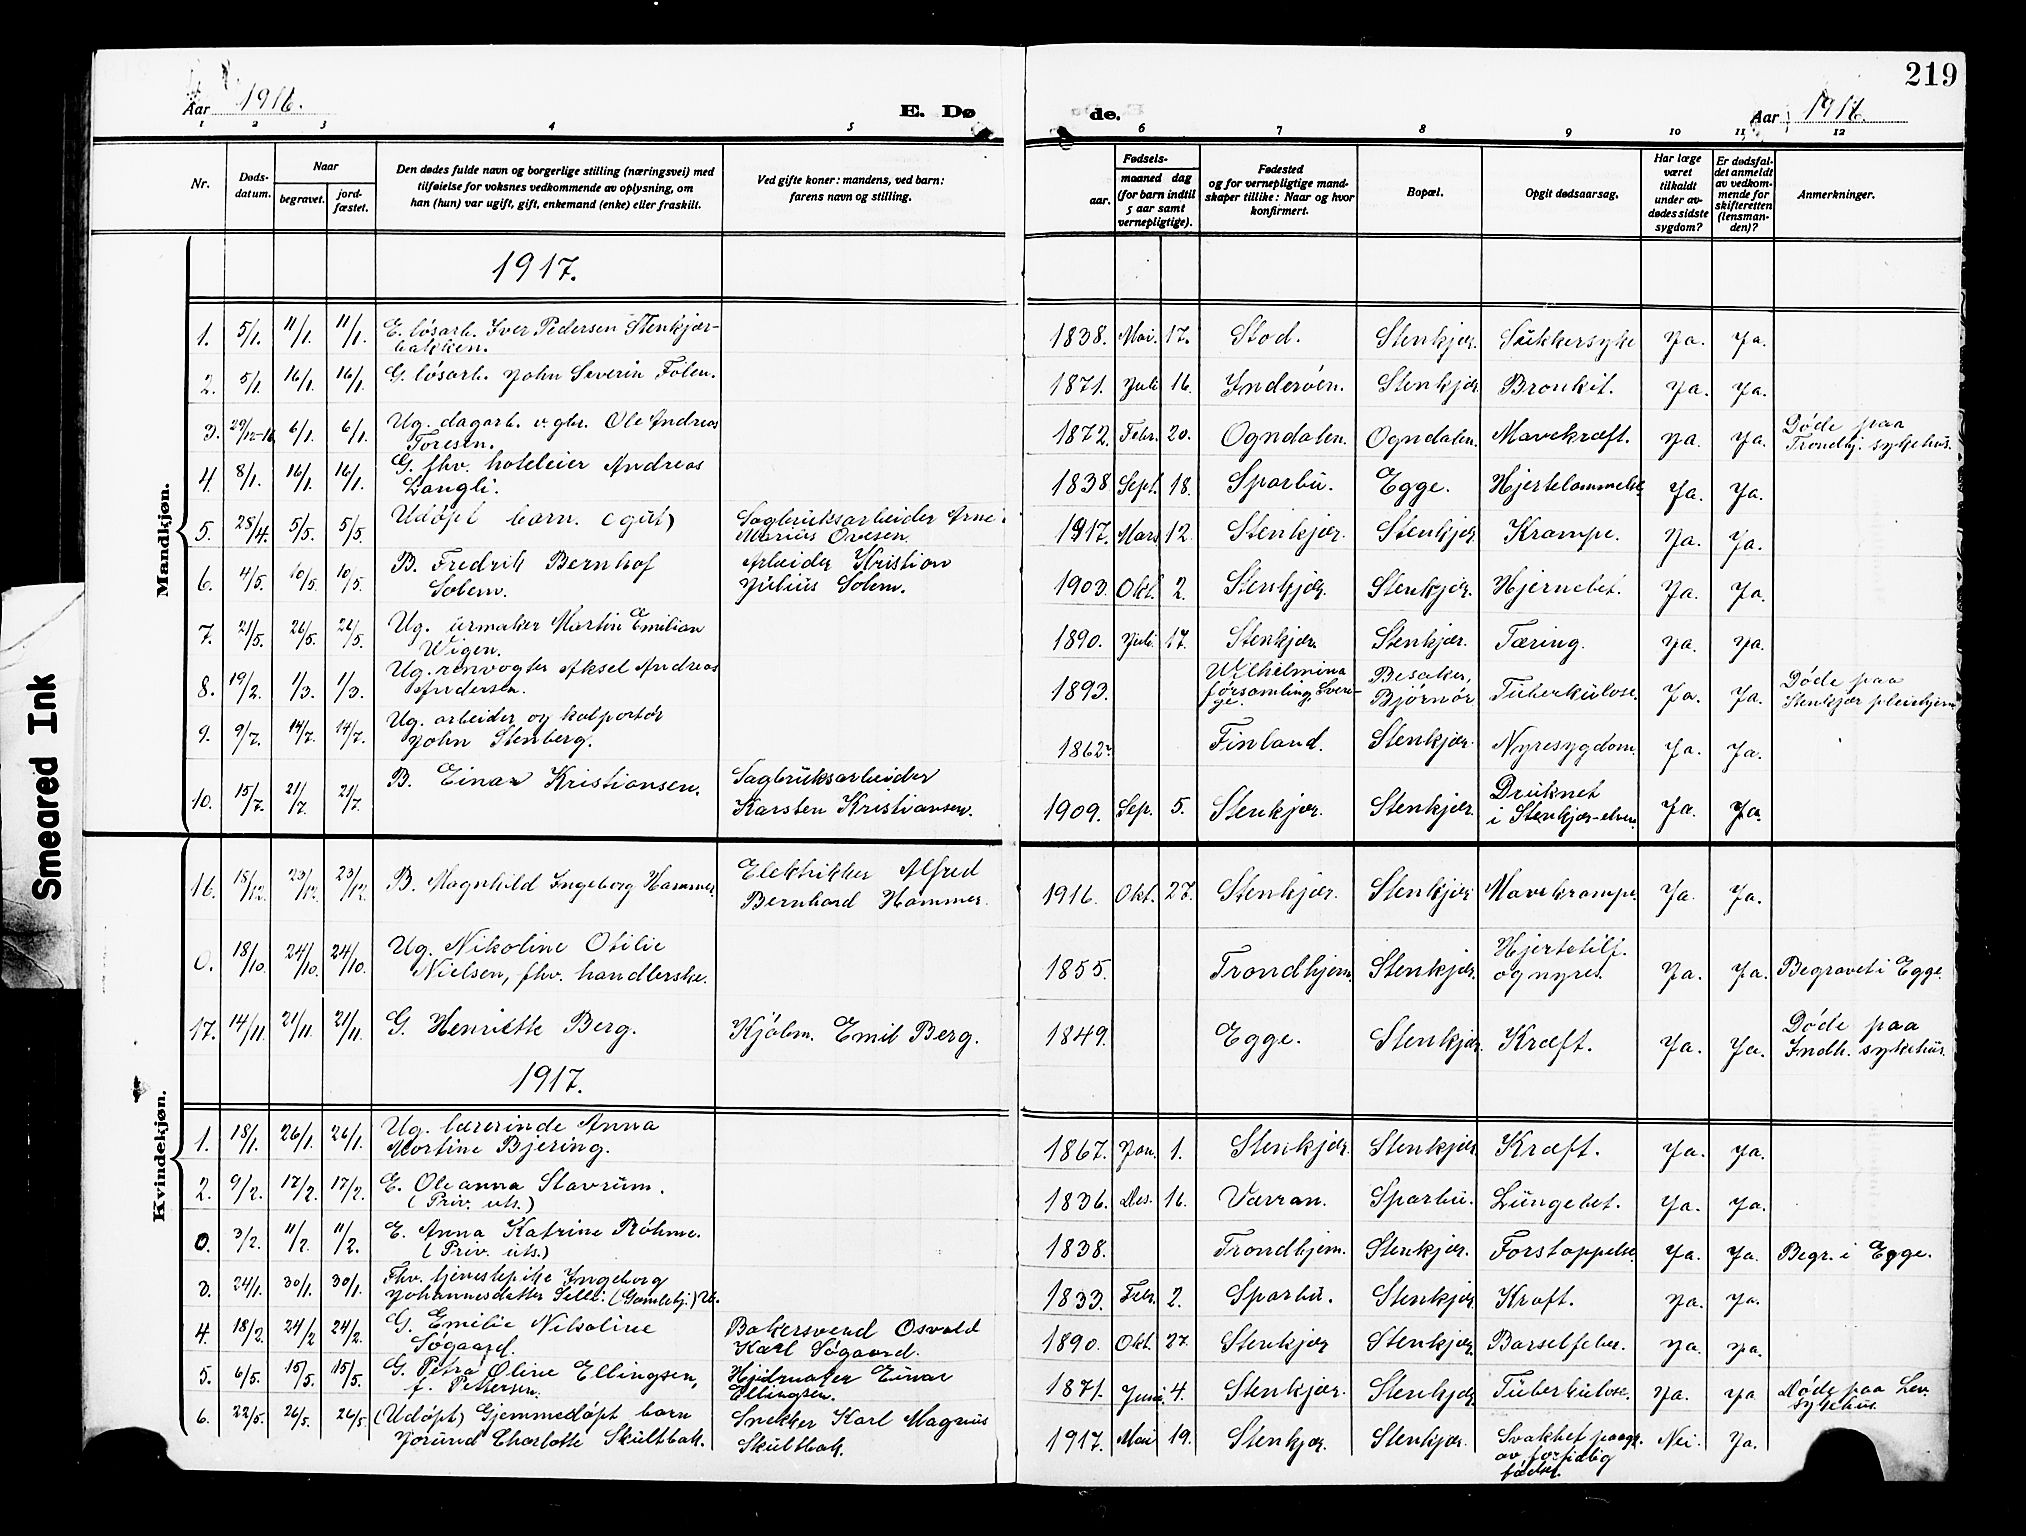 219
Aar 1916.
E. Dø
de.
Aar 1916.
1 2 3 4 5 6 7 8 9 10 11 12
Nr.
Døds-
datum.
Naar
begravet.
jord-
fæstet.
Den dødes fulde navn og borgerlige stilling (næringsvei) med
tilføielse for voksnes vedkommende av oplysning, om
han (hun) var ugift, gift, enkemand (enke) eller fraskilt.
Ved gifte koner: mandens, ved barn:
farens navn og stilling.
Fødsels-
aar.
maaned dag
(for barn indtil
5 aar samt
vernepligtige).
Fødested
og for vernepligtige mand-
skaper tillike: Naar og hvor
konfirmert.
Bopæl.
Opgit dødsaarsag.
Har læge
været
tilkaldt
under av-
dødes sidste
sygdom?
Er dødsfal-
det anmeldt
av vedkom-
mende for
skifteretten
(lensman-
den)?
Anmerkninger.
Mandkjøn.
1917.
1. 5/1. 11/1. 11/1. E. løsarb. Iver Pedersen Stenkjær-
bakken. 1838. Mai. 17. Stod. Stenkjær. Sukkersyke Ja. Ja.
2. 5/1. 16/1. 16/1. G. løsarb. John Severin Folen. 1871. Juli 16. Inderøen. Stenkjær. Bronkit. Ja. Ja.
3. 29/12-16. 6/1. 6/1. Ug. dagarb. v. gbr. Ole Andreas
Toresen. 1872. Febr. 20. Ogndalen. Ogndalen. Mavekræft. Ja. Ja. Døde paa
Trondhj. sykehus.
4. 8/1. 16/1. 16/1. G. fhv. hoteleier Andreas
Langli. 1838. Sept. 18. Sparbu. Egge. Hjertelammelse Ja. Ja.
5. 28/4. 5/5. 5/5. Udøpt barn. (gut) Sagbruksarbeider Arne
Marius Ovesen. 1917. Mars 12. Stenkjær. Stenkjær. Krampe. Ja. Ja.
6. 4/5. 10/5. 10/5. B. Fredrik Bernhof
Solem. Arbeider Kristian
Julius Solem. 1903. Okt. 2. Stenkjær. Stenkjær. Hjernebet. Ja. Ja.
7. 21/5. 26/5. 26/5. Ug. urmaker Martin Emilian
Wigen. 1890. Juli. 17. Stenkjær. Stenkjær. Tæring. Ja. Ja.
8. 19/2. 1/3. 1/3. Ug. renvogter Aksel Andreas
Andersen. 1893. Wilhelmina
församling, Sveri-
ge. Besaker,
Bjørnør Tuberkulose. Ja. Ja. Døde paa
Stenkjær pleiehjem
9. 9/7. 14/7. 14/7. Ug. arbeider og kolportør
John Stenberg. 1862. Finland. Stenkjær. Nyresygdom. Ja. Ja.
10. 15/7. 21/7. 21/7. B. Einar Kristiansen. Sagbruksarbeider
Karsten Kristiansen. 1909. Sep. 5. Stenkjær. Stenkjær. Druknet
i Stenkjær-elven. Ja. Ja.
Kvindekjøn.
16. 18/12. 23/12. 23/12. B. Magnhild Ingeborg Hammer. Elektrikker Alfred
Bernhard Hammer. 1916. Okt. 27. Stenkjær. Stenkjær Mavekrampe. Ja. Ja.
0. 18/10. 24/10. 24/10. Ug. Nikoline Otilie
Nielsen, fhv. handlerske. 1855. Trondhjem. Stenkjær. Hjertetilf.
og nyret. Ja. Ja. Begravet i Egge.
17. 14/11. 21/11. 21/11. G. Henriette Berg. Kjøbm. Emil Berg. 1849. Egge. Stenkjær Kræft. Ja. Ja. Døde paa
Indh. sykehus.
1917.
1. 18/1. 26/1. 26/1. Ug. lærerinde Anna
Martine Bjering. 1867. Jan. 1. Stenkjær. Stenkjær. Kræft. Ja. Ja.
2. 9/2. 17/2. 17/2. E. Oleanna Stavrum.
(Priv. uts.) 1836. Des. 16. Værran. Sparbu. Lungebet. Ja. Ja.
0. 3/2. 11/2. 11/2. E. Anna Katrine Bøhme.
(Priv. uts.) 1838. Trondhjem. Stenkjær. Forstoppelse Ja. Ja. Begr. i Egge.
3. 24/1. 30/1. 30/1. Fhv. tjenestepike Ingeborg
Johannesdatter Selli. (Gamlehj.) Ug. 1833. Febr. 2. Sparbu. Stenkjær Kræft. Ja. Ja.
4. 18/2. 24/2. 24/2. G. Emilie Nikoline
Søgaard. Bakersvend Osvald
Karl Søgaard. 1890. Okt. 27. Stenkjær Stenkjær. Barselfeber. Ja. Ja.
5. 6/5. 15/5. 15/5. G. Petra Oline Ellingsen,
f. Pettersen. Einar
Ellingsen. 1871. Juni. 4. Stenkjær. Stenkjær Tuberkulose. Ja. Ja Døde paa Lev.
sykehus.
6. 22/5. 26/5. 26/5. (Udøpt) Hjemmedøpt barn
Jorund Charlotte Skultbak. Snekker Karl Magnus
Skultbak. 1917. Mai 19. Stenkjær. Stenkjær. Svakhet paagr.
av for tidlig
fødsel. Nei. Ja.
Smeared Ink